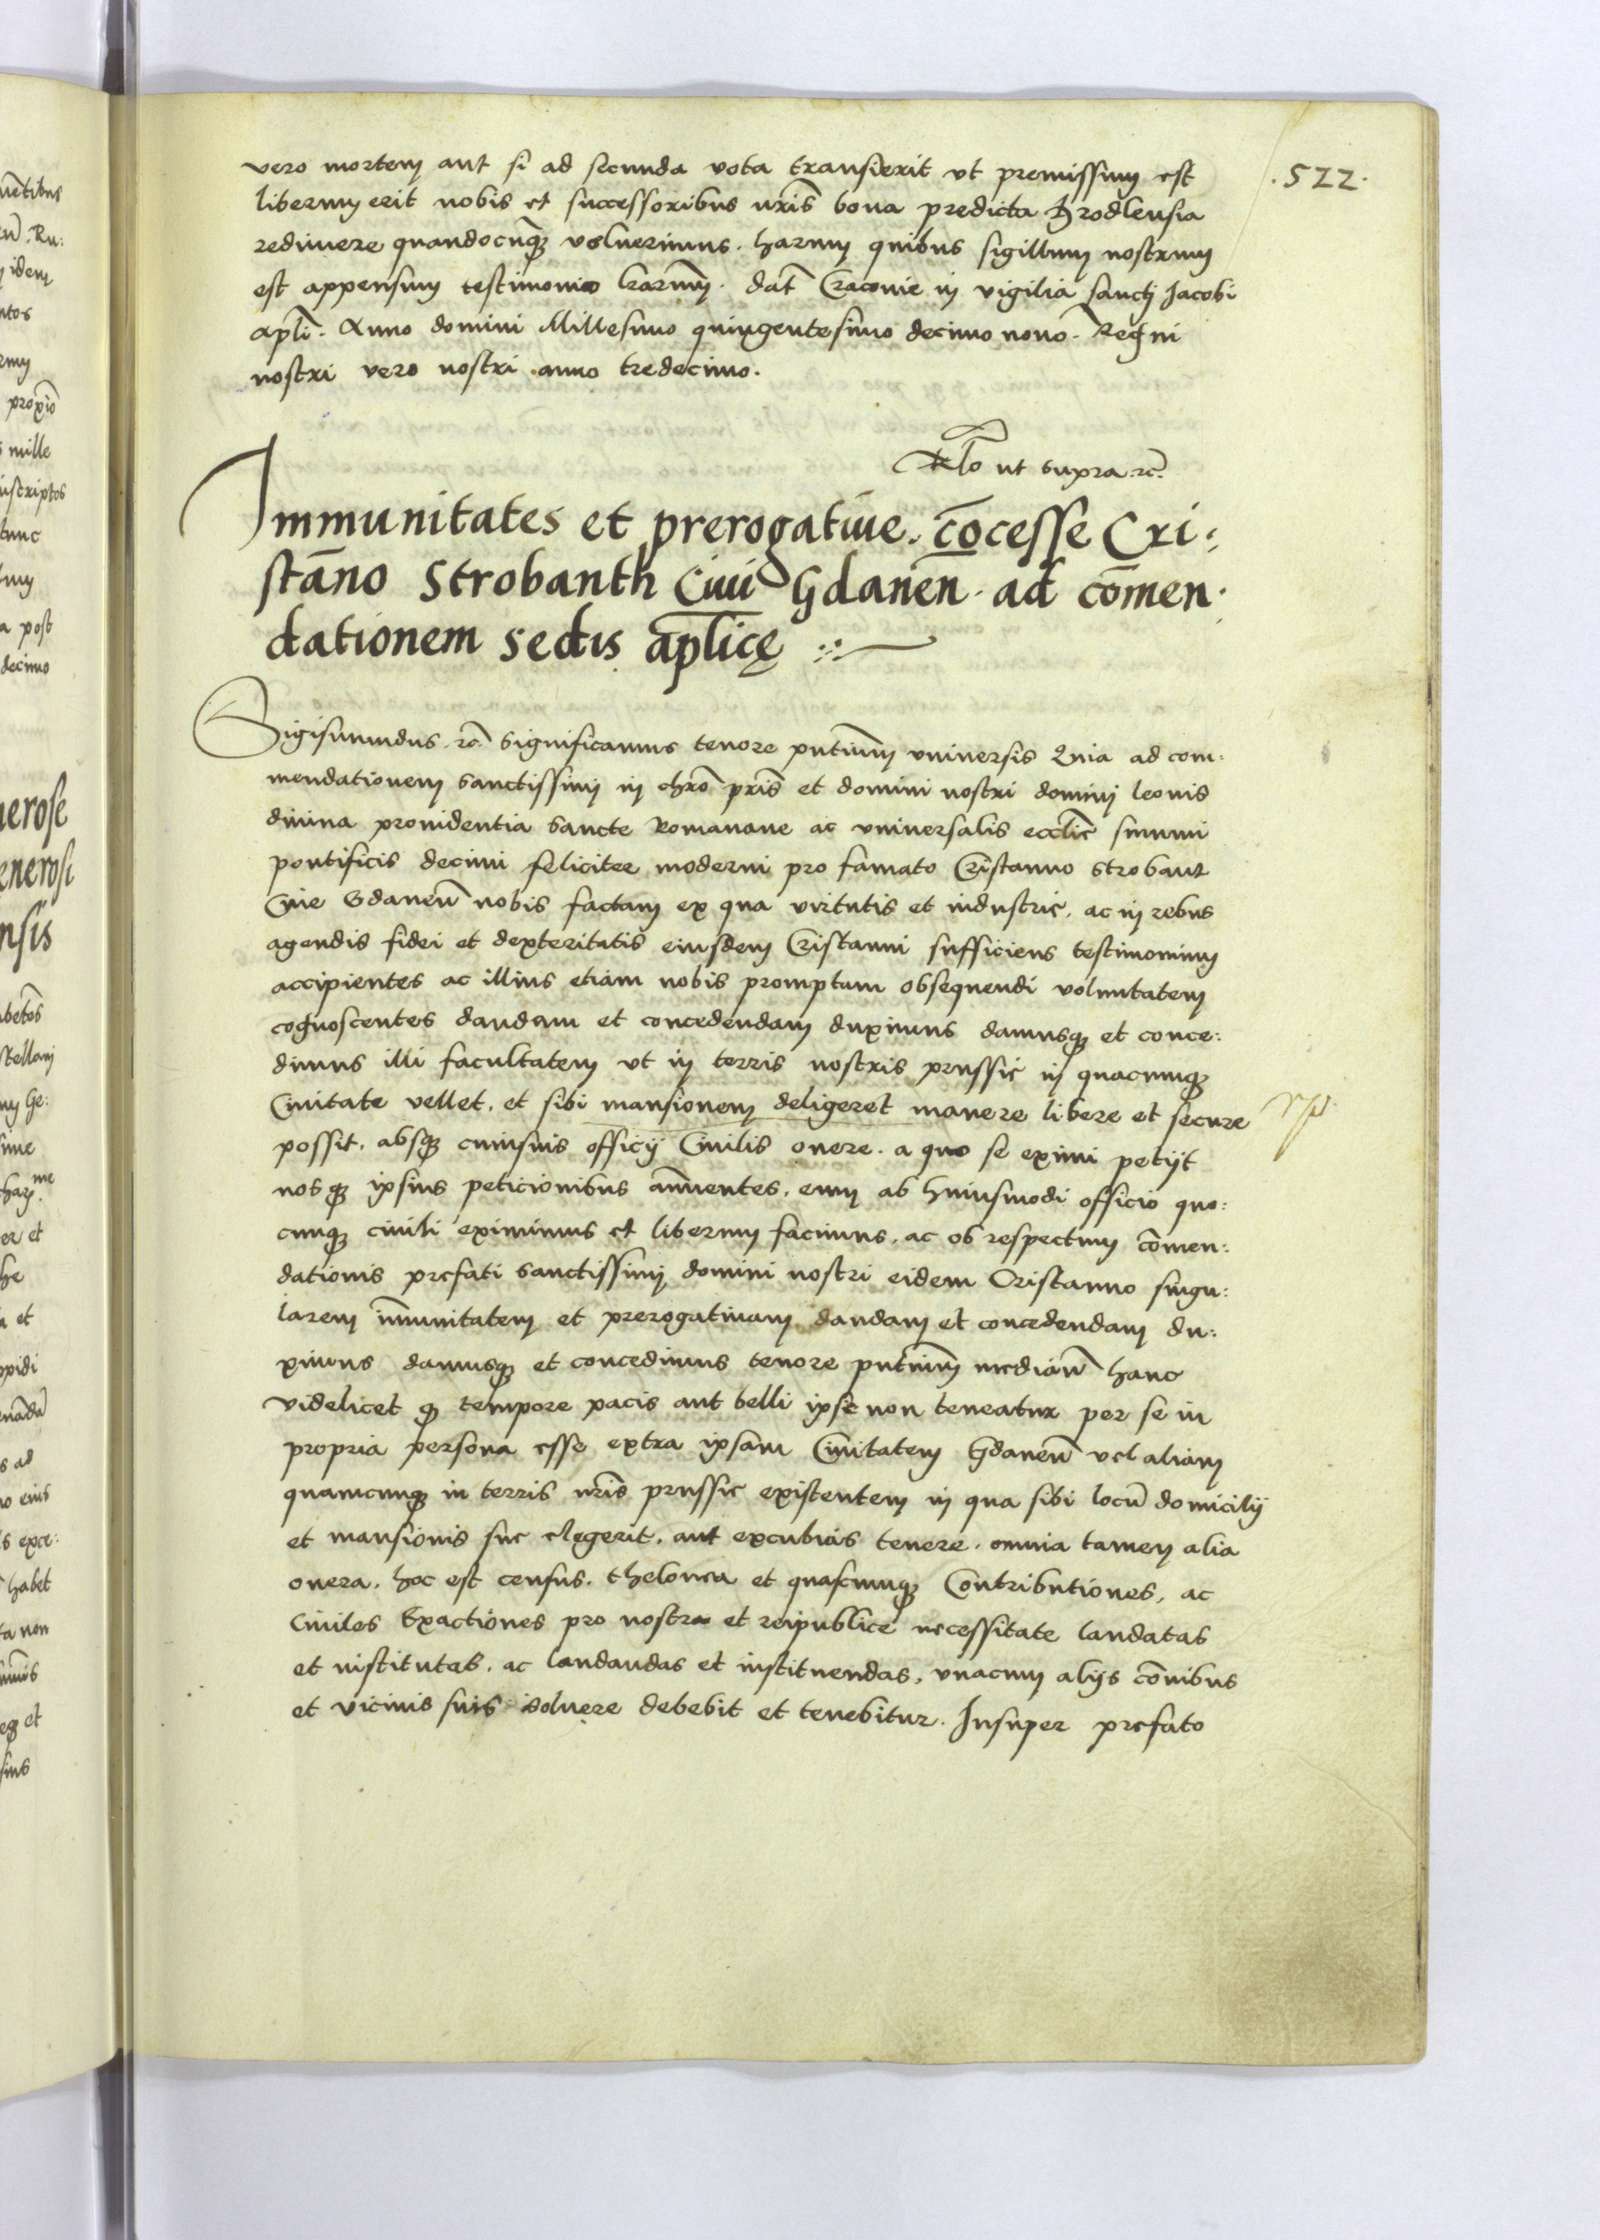 .522.
vero mortem aut si ad secunda vota transierit ut premissum est
liberum erit nobis et successoribus nr̃is bona predicta Hrodlensia
redimere quandocunq̃ꝫ voluerimus. harum quibus sigillum nostrum
est appensum testimonio lrarum̃. dat̃ Cracovie in vigilia sancti Jacobi
apl̃i. Anno domini Millesimo quingentesimo decimo nono. Regni
nostri vero nostri anno tredecimo.
Rl̃o ut supra ꝛc̃.
Immunitates et prerogative. cõcesse Cri:
stãno Strobanth Civi Gdaneñ. ad cõmen.
dationem sedis aplicę̃
Sigismundus. ꝛc̃. Significamus tenore pñtium̃ universis Quia ad com:
mendationem sanctissimi in chrõ pr̃is et domini nostri domini leonis
divina providentia sancte Romanane ac universalis eccliẽ summi
pontificis decimi feliciter moderni pro famato Cristanno Strobant
Cive Gdaneñ nobis factam ex qua virtutis et industrie, ac in rebus
agendis fidei et dexteritatis eiusdem Cristanni sufficiens testimonium
accipientes ac illius etiam nobis promptam obsequendi voluntatem
cognoscentes dandam et concedendam duximus damusqꝫ et conce:
dimus illi facultatem ut in terris nostris prussie in quacumqꝫ
Civitate vellet. et sibi mansionem deligeret manere libere et secure
possit. absqꝫ cuiusvis officij Civilis onere. a quo se eximi petijt
nosqꝫ ipsius peticionibus añuentes, eum ab huiusmodi officio quo:
cunqꝫ civili eximimus et liberum facimus, ac ob respectum cõmen:
dationis prefati sanctissimi domini nostri eidem Cristanno singu:
larem im̃unitatem et prerogativam dandam et concedendam du:
ximus damusqꝫ et concedimus tenore pñtium̃ mediañ hanc
videlicet qꝫ tempore pacis aut belli ipse non teneatur per se in
propria persona esse extra ipsam Civitatem Gdaneñ vel aliam
quamcunqꝫ in terris nr̃is prussie existentem in qua sibi locũ domicilij
et mansionis sue elegerit. aut excubias tenere. omnia tamen alia
onera. hoc est census. thelonea et quascunqꝫ Contributiones, ac
Civiles Exactiones pro nostra et reipublice necessitate laudatas
et institutas. ac laudandas et instituendas, unacum alijs cõnibus
et vicinis suis solvere debebit et tenebitur. Insuper prefato